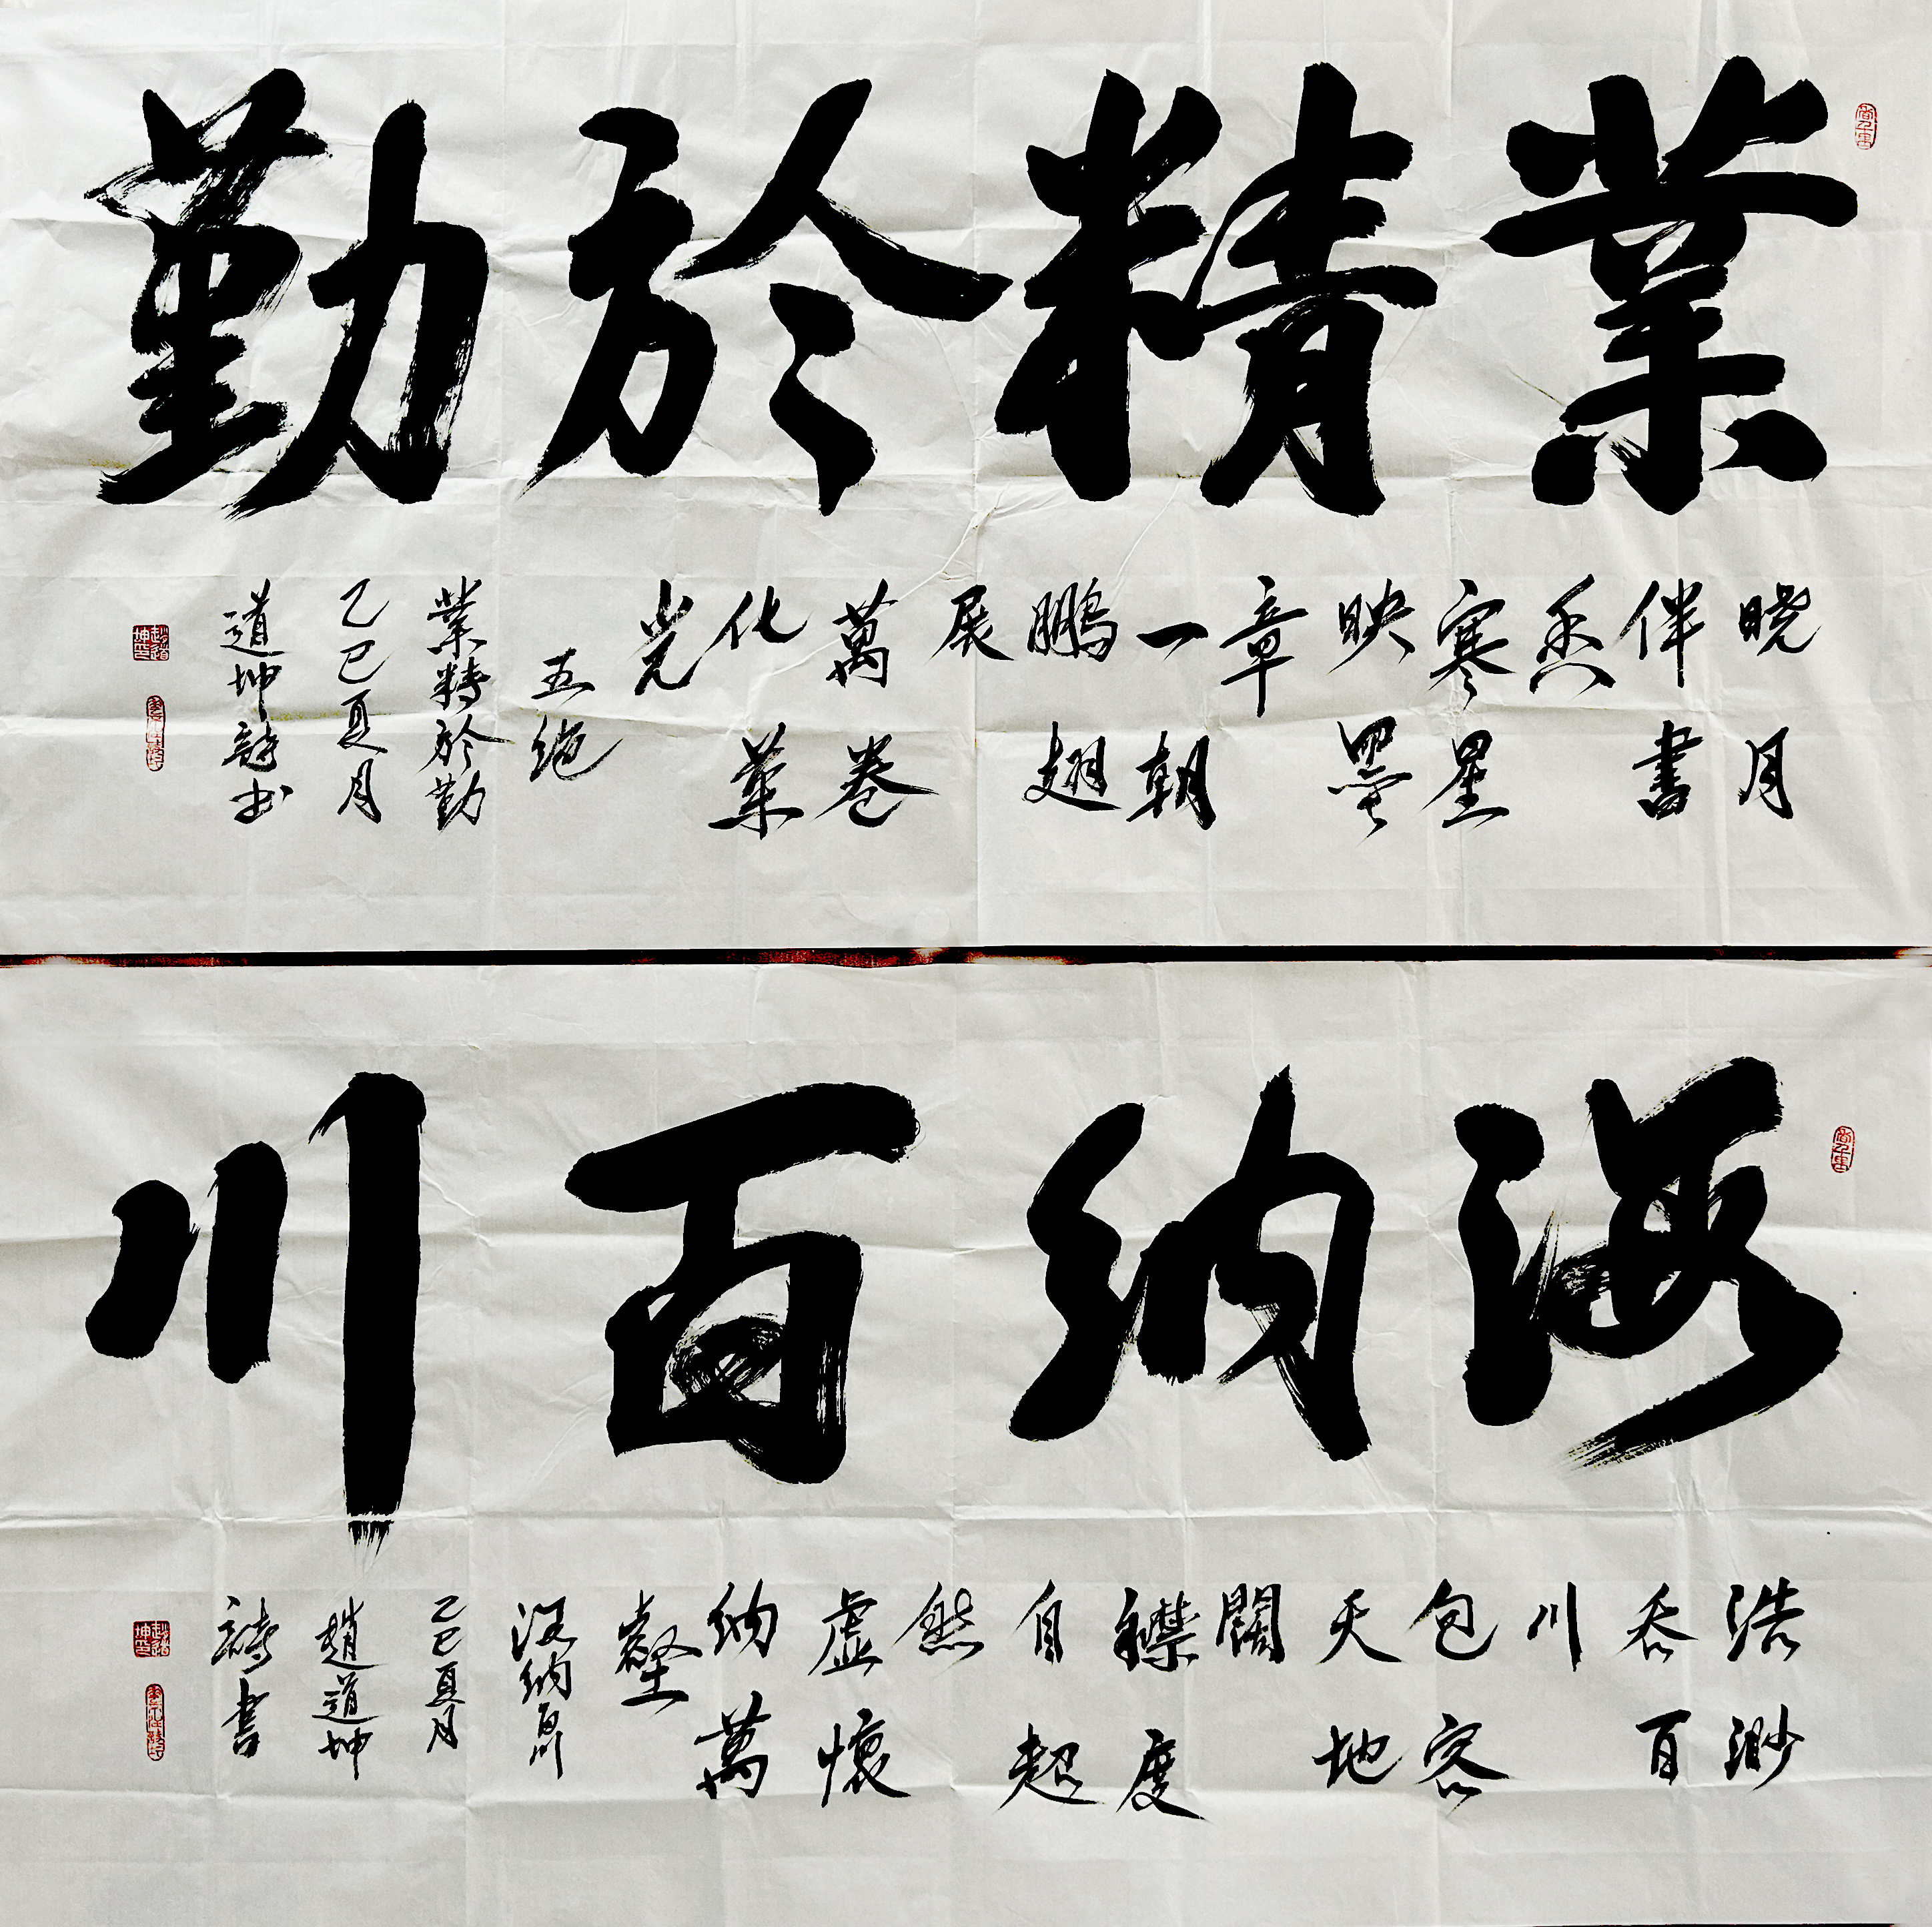 業精於勤
晓月
伴書
香
寒星
映墨
章
一朝
鵬翅
展
萬卷
化業
光
五绝
業精於勤
乙巳夏月
道坤詩书
海納百川
浩渺
吞百
川
包容
天地
闊
襟度
自超
然
虛懷
納萬
壑
海納百川
乙巳夏月
趙道坤
詩書